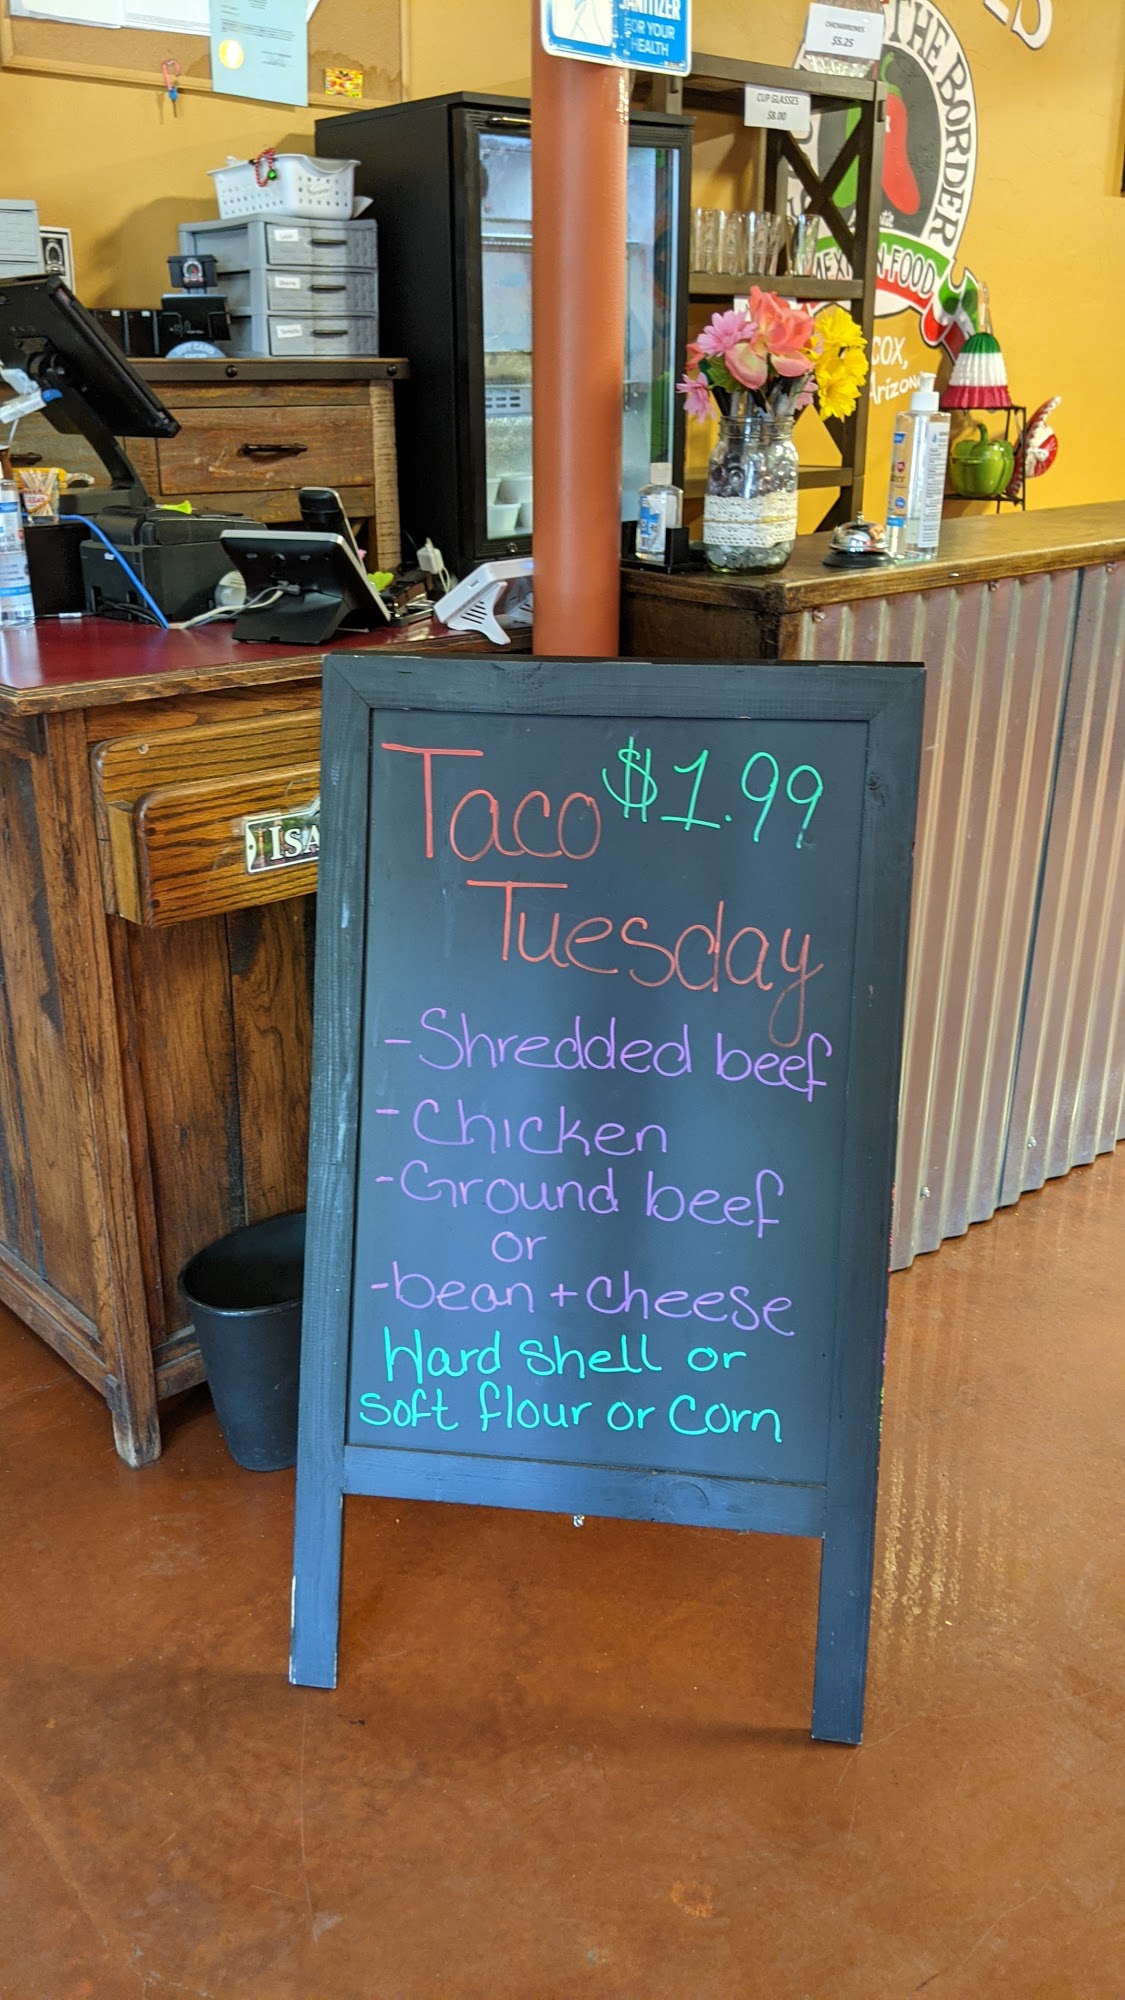 SANITIZER
FOR YOUR
HEALTH
CHICHARRONES
$5.25
CUP GLASSES
$8.00
THE BORDER
FOOD
COX,
Arizona
GIFT CARD
ISA
Taco $1.99
Tuesday
-Shredded beef
-Chicken
-Ground beef
or
-bean + cheese
Hard shell or
soft flour or corn